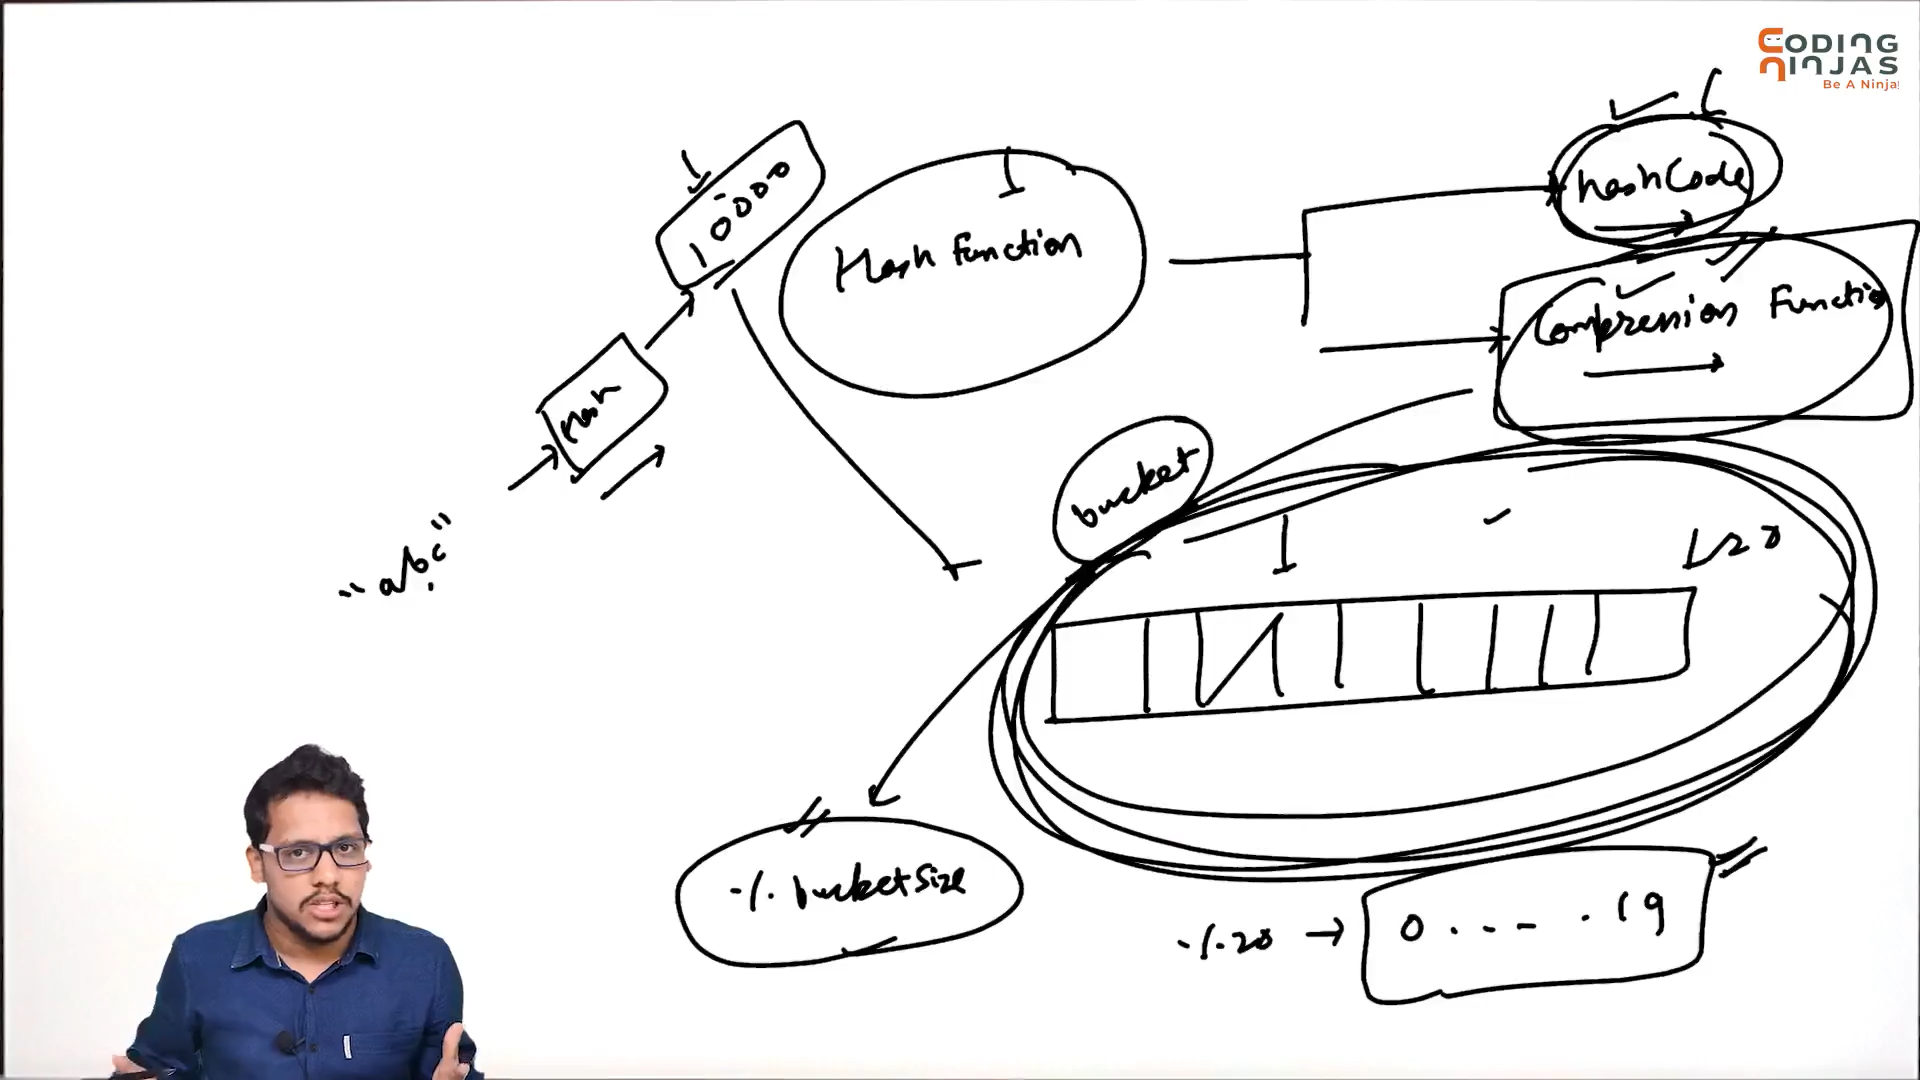 CODING
NINJAS
Be A Ninja!
10000
Hash Function
hashCode
Compression Functio
Hash
bucket
"abc"
20
% bucketSize
% 20 → 0 . - - - . 19